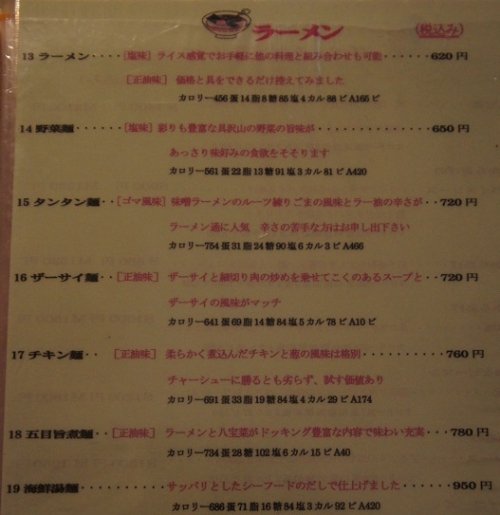 ラーメン (税込み)
13 ラーメン････[塩味] ライス感覚でお手軽に他の料理と組み合わせも可能･････620円
[正油味] 価格と具をできるだけ控えてみました
カロリー456 蛋14 脂8 糖85 塩4 カル88 ビA165 ビ
14 野菜麺･･･････[塩味] 彩りも豊富な具沢山の野菜の旨味が･･････････････650円
あっさり味好みの食欲をそそります
カロリー561 蛋22 脂13 糖91 塩3 カル81 ビA420
15 タンタン麺･･[ゴマ風味] 味噌ラーメンのルーツ練りごまの風味とラー油の辛さが･･720円
ラーメン通に人気 辛さの苦手な方はお申し出下さい
カロリー754 蛋31 脂24 糖90 塩6 カル3 ビA466
16 ザーサイ麺･･[正油味] ザーサイと細切り肉の炒めを乗せてこくのあるスープと･･720円
ザーサイの風味がマッチ
カロリー641 蛋69 脂14 糖84 塩5 カル78 ビA10 ビ
17 チキン麺･･[正油味] 柔らかく煮込んだチキンと葱の風味は格別･･････････760円
チャーシューに勝るとも劣らず、試す価値あり
カロリー691 蛋33 脂19 糖84 塩4 カル29 ビA174
18 五目旨煮麺･･[正油味] ラーメンと八宝菜がドッキング豊富な内容で味わい充実･･･780円
カロリー734 蛋28 糖102 塩6 カル15 ビA40
19 海鮮湯麺･･････････サッパリとしたシーフードのだしで仕上げました･･････950円
カロリー686 蛋71 脂16 糖84 塩3 カル92 ビA420